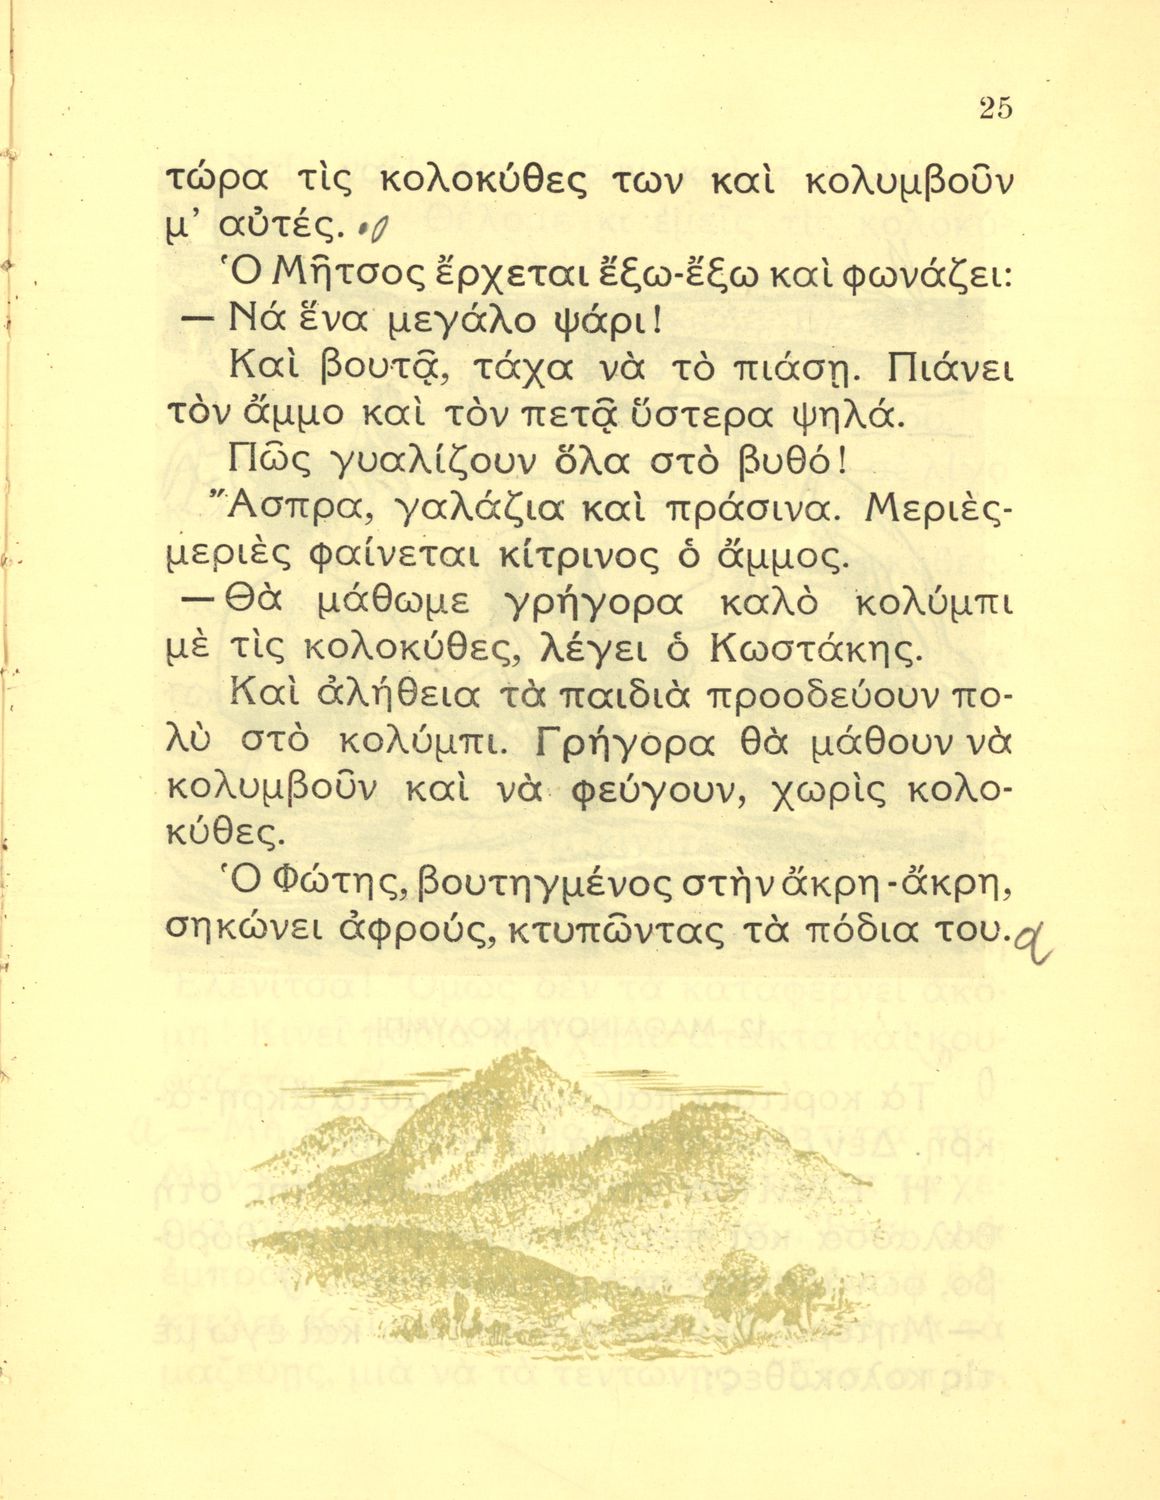 25
τώρα τὶς κολοκύθες των καὶ κολυμβοῦν
μ’ αὐτές.
Ὁ Μῆτσος ἔρχεται ἔξω-ἔξω καὶ φωνάζει:
— Νά ἕνα μεγάλο ψάρι!
Καὶ βουτᾷ, τάχα νὰ τὸ πιάσῃ. Πιάνει
τὸν ἄμμο καὶ τὸν πετᾷ ὕστερα ψηλά.
Πῶς γυαλίζουν ὅλα στὸ βυθό!
Ἄσπρα, γαλάζια καὶ πράσινα. Μεριὲς-
μεριὲς φαίνεται κίτρινος ὁ ἄμμος.
— Θὰ μάθωμε γρήγορα καλὸ κολύμπι
μὲ τὶς κολοκύθες, λέγει ὁ Κωστάκης.
Καὶ ἀλήθεια τὰ παιδιὰ προοδεύουν πο-
λὺ στὸ κολύμπι. Γρήγορα θὰ μάθουν νὰ
κολυμβοῦν καὶ νὰ φεύγουν, χωρὶς κολο-
κύθες.
Ὁ Φώτης, βουτηγμένος στὴν ἄκρη-ἄκρη,
σηκώνει ἀφρούς, κτυπῶντας τὰ πόδια του.